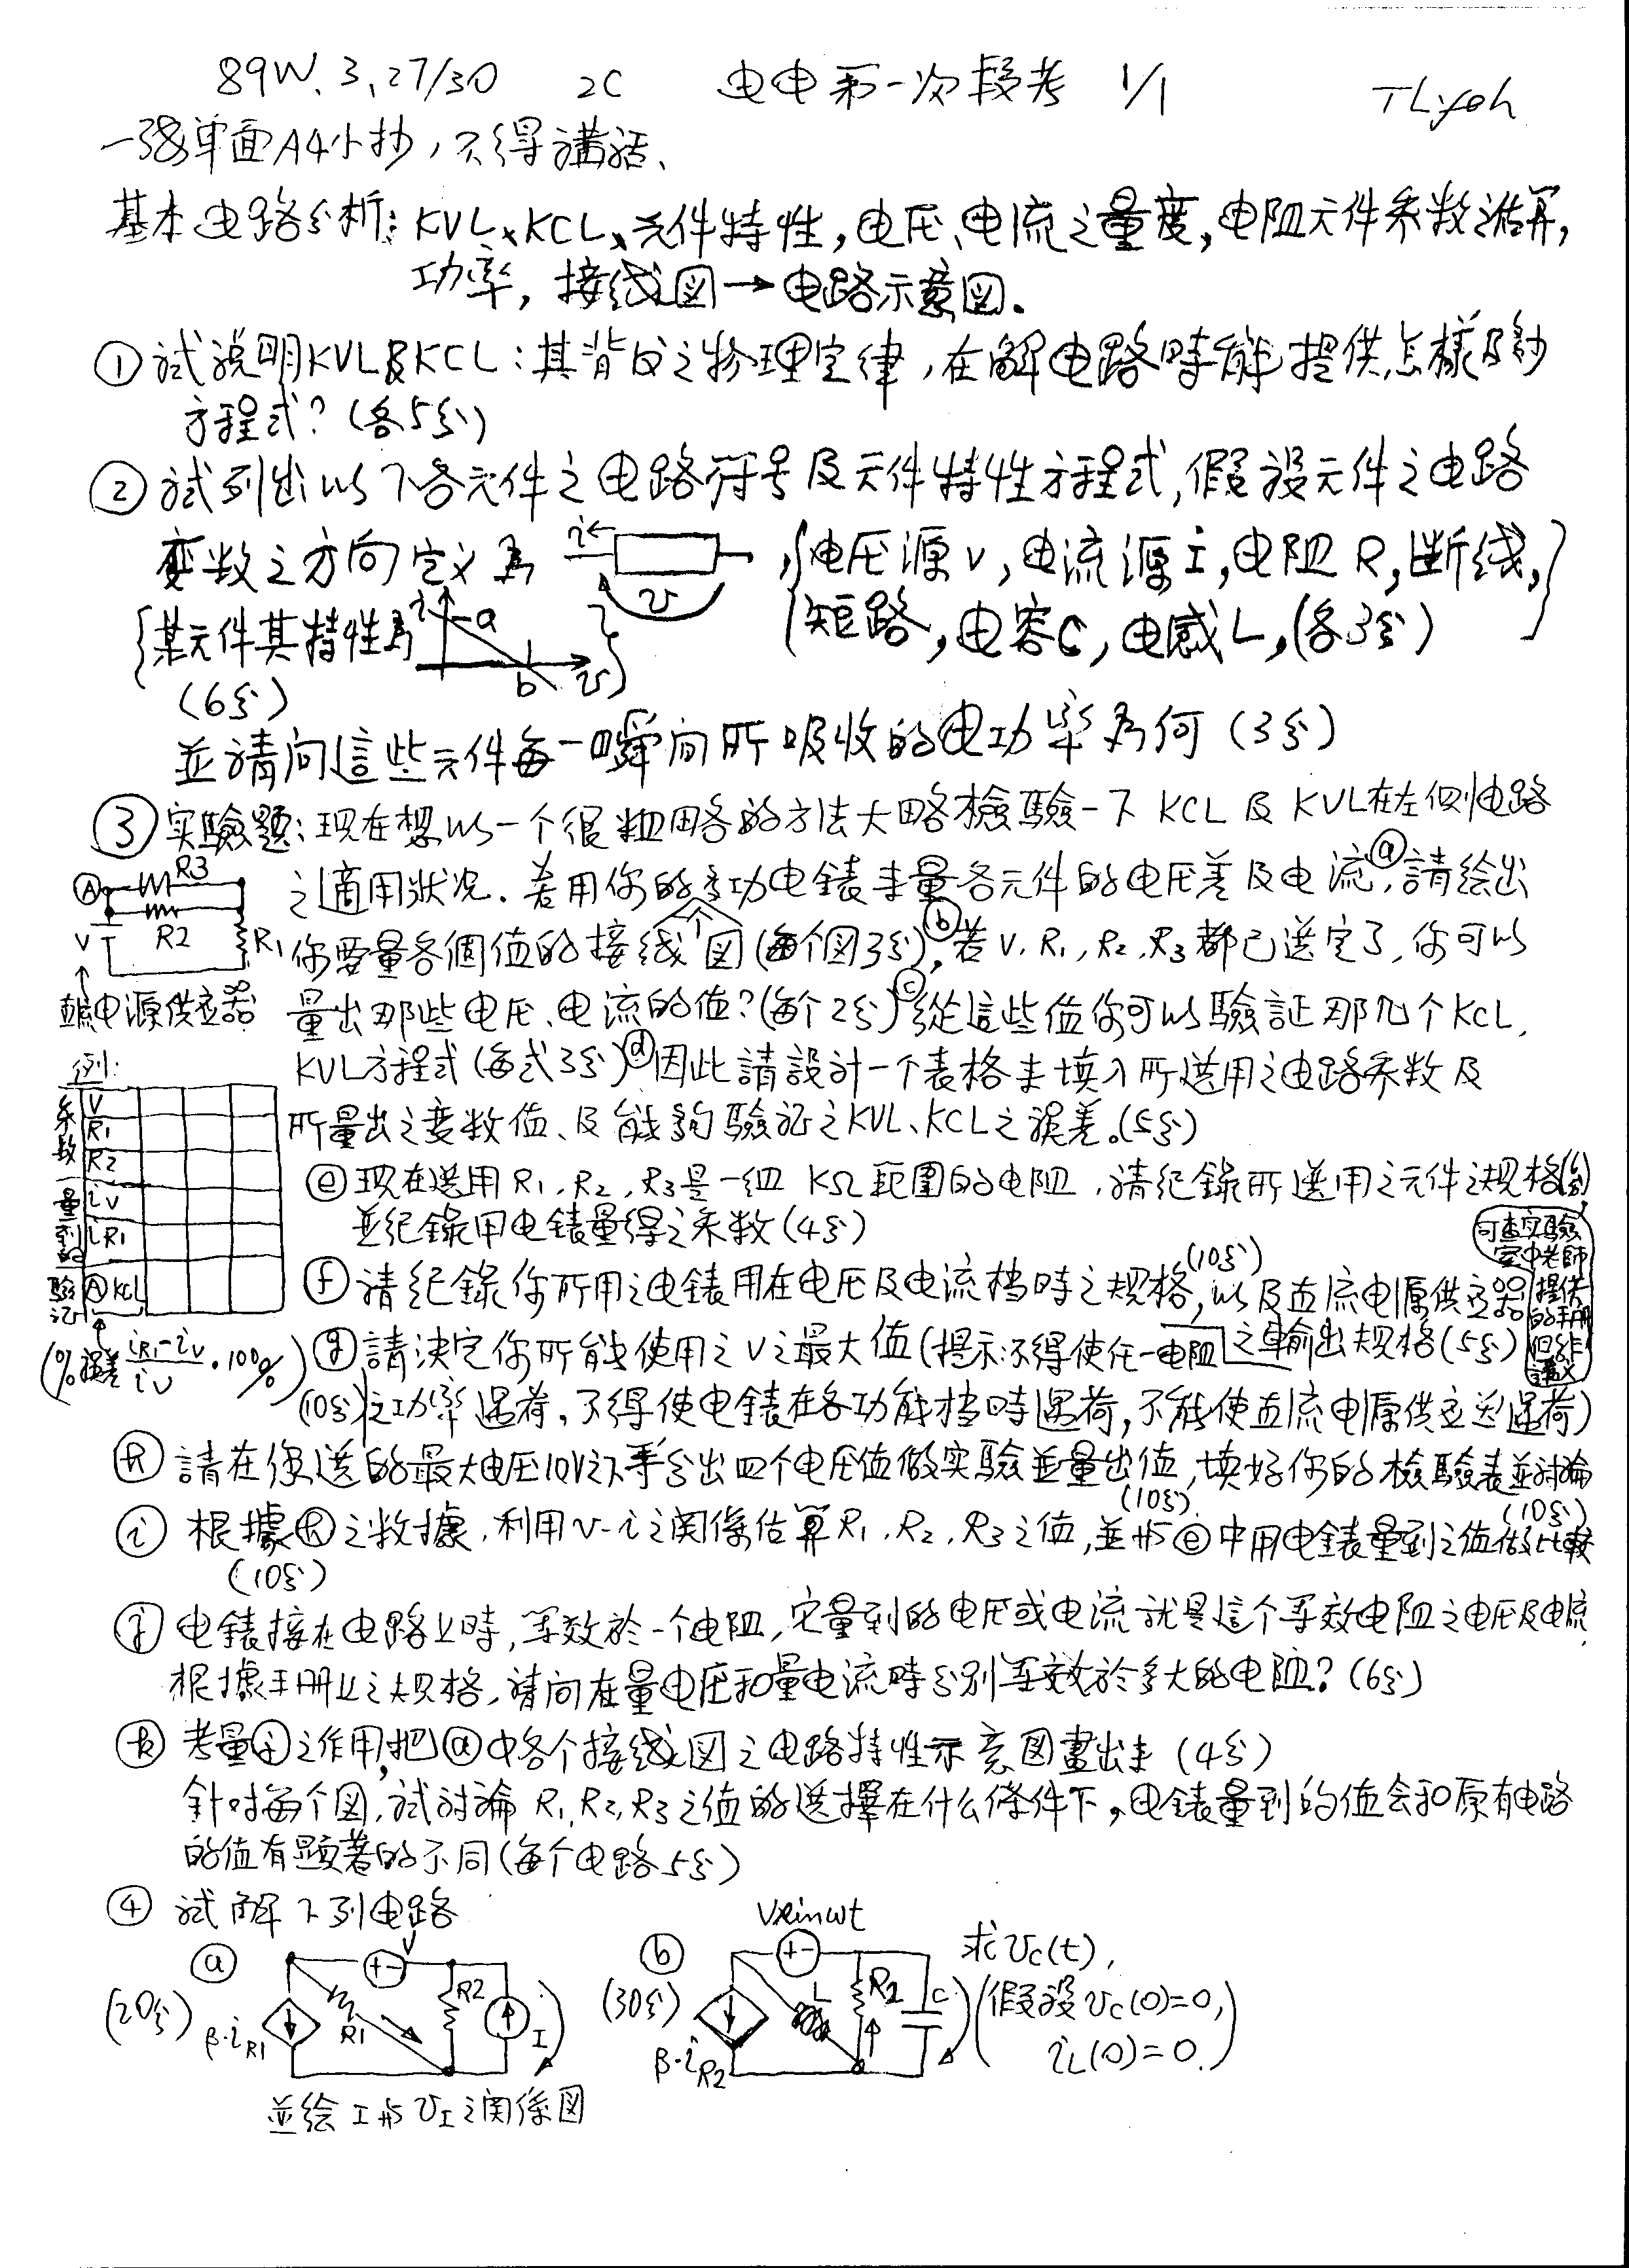 89W. 3, 27/30 2C 电电第一次段考 1/1 TLyeh
一張单面A4小抄，不得講話、
基本电路分析: KVL、KCL、元件特性，电压、电流之量度，电阻元件系数之估算，
功率，接线図→电路示意図.
① 試說明KVL及KCL：其背後之物理定律，在解电路時能提供怎樣及多少
方程式？(各5分)
② 試列出以下各元件之电路符号及元件特性方程式，假設元件之电路
变数之方向定义為 i v ，{电压源v，电流源i，电阻R，断线，
短路，电容C，电感L，(各3分)}
{某元件其特性為 i a b v}
(6分)
並請问這些元件每一瞬间所吸收的电功率為何 (3分)
③ 实驗題：现在想以一个很粗略的方法大略檢驗一下 KCL 及 KVL在左側电路
之適用狀况. 若用你的多功电錶来量各元件的电压差及电流，ⓐ請绘出
你要量各個值的接线図(每个図3分)，ⓑ若V, R1, R2, R3都已选定了，你可以
量出那些电压、电流的值？(每个2分) ⓒ從這些值你可以驗証那几个KCL,
KVL方程式 (每式3分) ⓓ因此請設計一个表格来填入所选用之电路系数及
所量出之变数值、及能夠驗証之KVL、KCL之误差。(5分)
Ⓐ R3 R2 R1 V
直流电源供应器
例:
系数 V R1 R2
量到的 iv iR1
驗証 Ⓐ KCL
(%誤差 iR1-iv/iv · 100%)
ⓔ 现在选用 R1, R2, R3是一组 KΩ 範圍的电阻，請纪錄所选用之元件之規格
並纪錄用电錶量得之系数(4分)
可查实驗室中老師提供的手册但非講义
ⓕ 請纪錄你所用之电錶用在电压及电流档時之规格，(10分) 以及直流电源供应器之輸出規格(5分)
ⓖ 請决定你所能使用之V之最大值(提示:不得使任一电阻
(10分) 之功率過荷，不得使电錶在各功能档時過荷，不能使直流电源供应器過荷)
ⓗ 請在你选的最大电压10V之下等分出四个电压值做实驗並量出值，填好你的檢驗表並討論
(10分) (10分)
ⓘ 根據ⓗ之数據，利用v-i之関係估算R1, R2, R3之值，並与ⓔ中用电錶量到之值做比較
(10分)
ⓙ 电錶接在电路上時，等效於一个电阻，它量到的电压或电流就是這个等效电阻之电压及电流
根據手册上之規格，請问在量电压和量电流時分别等效於多大的电阻？(6分)
ⓚ 考量ⓙ之作用，把ⓐ中各个接线図之电路特性示意図畫出来 (4分)
針对每个図，試討論 R1, R2, R3之值的选擇在什么條件下，电錶量到的值会和原有电路
的值有顯著的不同(每个电路5分)
④ 試解下列电路
ⓐ (20分) β·iR1 R1 V R2 I
並绘 I 与 vI 之関係図
ⓑ (30分) β·iR2 Vsinωt L R2 C
求vc(t),
(假設vc(0)=0,
iL(0)=0.)